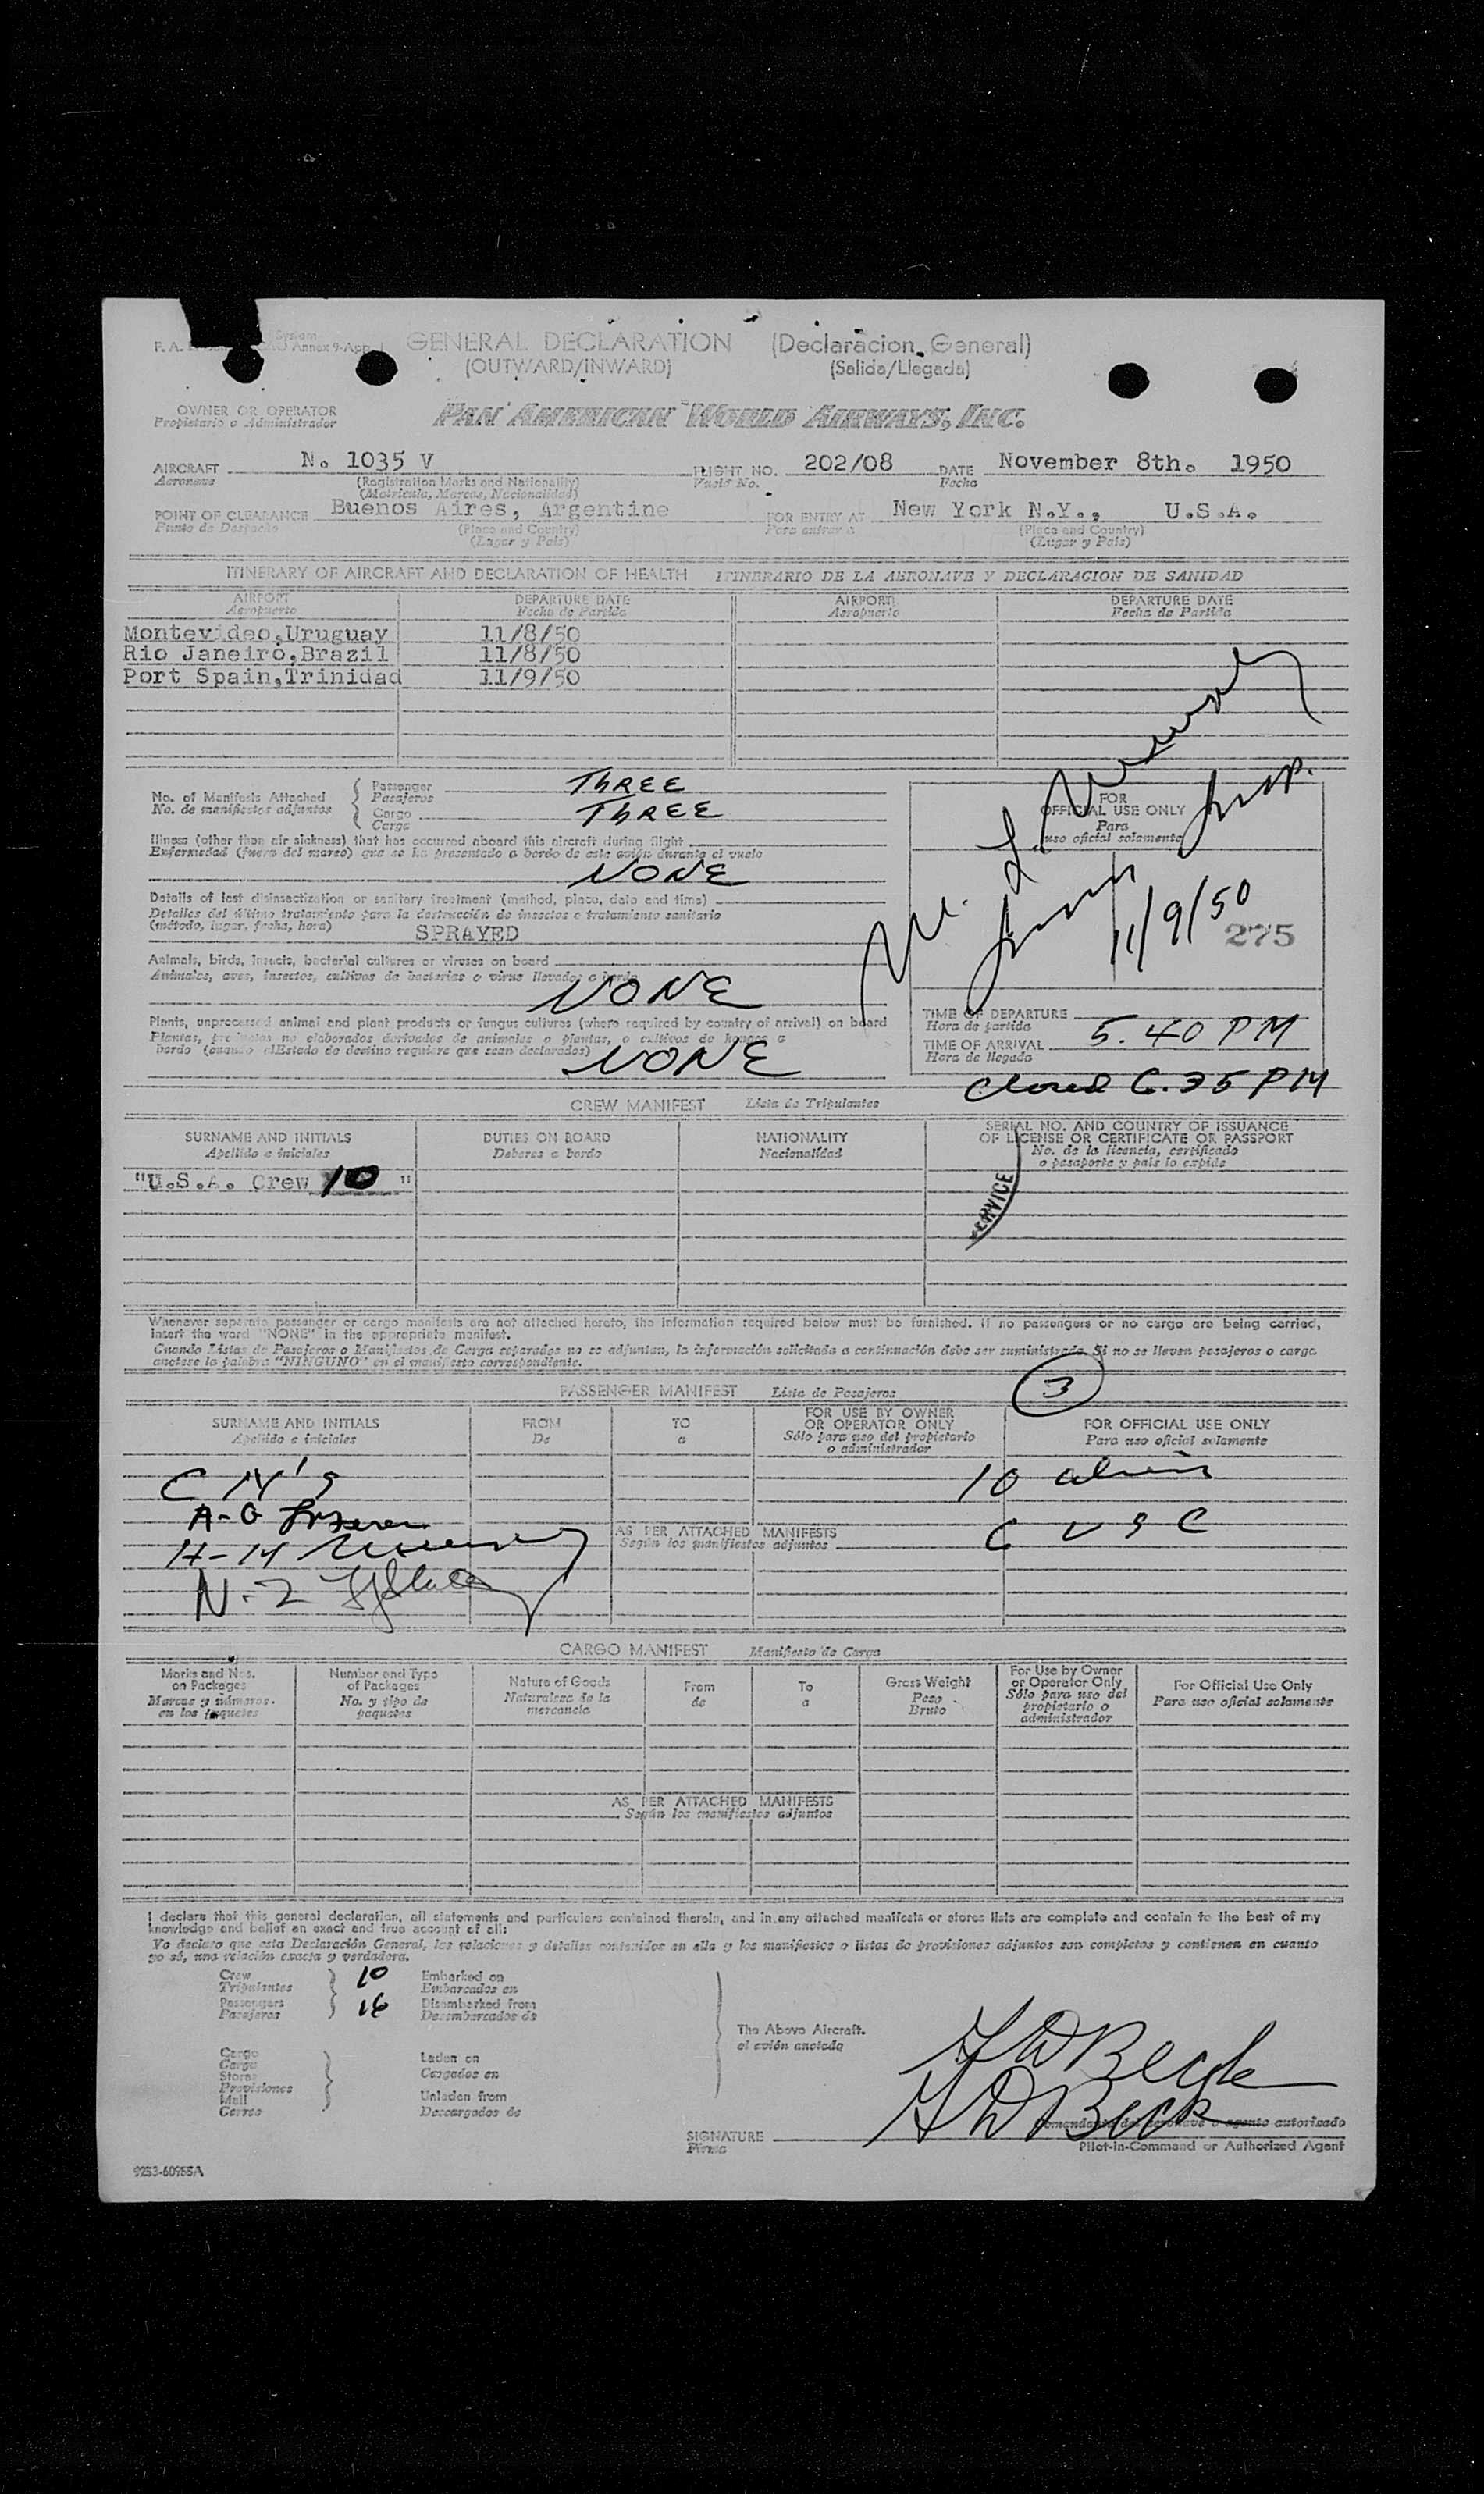 System
F. A. Annex 9-App. 1
GENERAL DECLARATION (Declaracion General)
(OUTWARD/INWARD) (Salida/Llegada)
OWNER OR OPERATOR
Propietario o Administrador
PAN AMERICAN WORLD AIRWAYS, INC.
AIRCRAFT N. 1035 V FLIGHT NO. 202/08 DATE November 8th. 1950
Aeronave (Registration Marks and Nationality) Vuelo No. Fecha
(Matricula, Marcas, Nacionalidad)
POINT OF CLEARANCE Buenos Aires, Argentine FOR ENTRY AT New York N.Y., U.S.A.
Punto de Despacho (Place and Country) Para entrar a (Place and Country)
(Lugar y Pais) (Lugar y Pais)
ITINERARY OF AIRCRAFT AND DECLARATION OF HEALTH ITINERARIO DE LA AERONAVE Y DECLARACION DE SANIDAD
AIRPORT DEPARTURE DATE AIRPORT DEPARTURE DATE
Aeropuerto Fecha de Partida Aeropuerto Fecha de Partida
Montevideo,Uruguay 11/8/50
Rio Janeiro,Brazil 11/8/50
Port Spain,Trinidad 11/9/50
No. of Manifests Attached
No. de manifiestos adjuntos
Passenger THREE
Pasajeros
Cargo THREE
Carga
FOR
OFFICIAL USE ONLY
Para
uso oficial solamente
Insp.
11/9/50
275
Illness (other than air sickness) that has occurred aboard this aircraft during flight
Enfermedad (fuera del mareo) que se ha presentado a bordo de este avión durante el vuelo
NONE
Details of last disinsectization or sanitary treatment (method, place, date and time)
Detalles del último tratamiento para la destrucción de insectos o tratamiento sanitario
(método, lugar, fecha, hora) SPRAYED
Animals, birds, insects, bacterial cultures or viruses on board
Animales, aves, insectos, cultivos de bacterias o virus llevados a bordo
NONE
Plants, unprocessed animal and plant products or fungus cultures (where required by country of arrival) on board
Plantas, productos no elaborados derivados de animales o plantas, o cultivos de hongos a
bordo (cuando el Estado de destino requiere que sean declarados)
NONE
TIME OF DEPARTURE
Hora de partida
TIME OF ARRIVAL 5.40 PM
Hora de llegada
Closed 6.35 PM
CREW MANIFEST Lista de Tripulantes
SURNAME AND INITIALS DUTIES ON BOARD NATIONALITY SERIAL NO. AND COUNTRY OF ISSUANCE
Apellido e iniciales Deberes a bordo Nacionalidad OF LICENSE OR CERTIFICATE OR PASSPORT
No. de la licencia, certificado
o pasaporte y pais lo expide
"U.S.A. Crew 10 "
SERVICE
Whenever separate passenger or cargo manifests are not attached hereto, the information required below must be furnished. If no passengers or no cargo are being carried,
insert the word "NONE" in the appropriate manifest.
Cuando Listas de Pasajeros o Manifiestos de Carga separados no se adjuntan, la información solicitada a continuación debe ser suministrada. Si no se lleven pasajeros o carga
anotese la palabra "NINGUNO" en el manifiesto correspondiente.
3
PASSENGER MANIFEST Lista de Pasajeros
SURNAME AND INITIALS FROM TO FOR USE BY OWNER OR OPERATOR ONLY FOR OFFICIAL USE ONLY
Apellido e iniciales De a Sólo para uso del propietario o administrador Para uso oficial solamente
10 aliens
A-G
AS PER ATTACHED MANIFESTS 6 USC
Según los manifiestos adjuntos
H-M
N-Z
CARGO MANIFEST Manifiesto de Carga
Marks and Nos. on Packages Number and Type of Packages Nature of Goods From To Gross Weight For Use by Owner or Operator Only For Official Use Only
Marcas y números en los paquetes No. y tipo de paquetes Naturaleza de la mercancia de a Peso Bruto Sólo para uso del propietario o administrador Para uso oficial solamente
AS PER ATTACHED MANIFESTS
Según los manifiestos adjuntos
I declare that this general declaration, all statements and particulars contained therein, and in any attached manifests or stores lists are complete and contain to the best of my
knowledge and belief an exact and true account of all:
Yo declaro que esta Declaración General, las relaciones y detalles contenidos en ella y los manifiestos o listas de provisiones adjuntos son completos y contienen en cuanto
yo sé, una relación exacta y verdadera.
Crew 10 Embarked on
Tripulantes Embarcados en
Passengers 16 Disembarked from
Pasajeros Desembarcados de
The Above Aircraft.
el avión anotado
Cargo Laden on
Carga Cargados en
Stores
Provisiones Unladen from
Mail Descargados de
Correo
H D Beck
H D Beck
Comandante del aeronave o agente autorizado
SIGNATURE
Firma Pilot-in-Command or Authorized Agent
9253-60955A